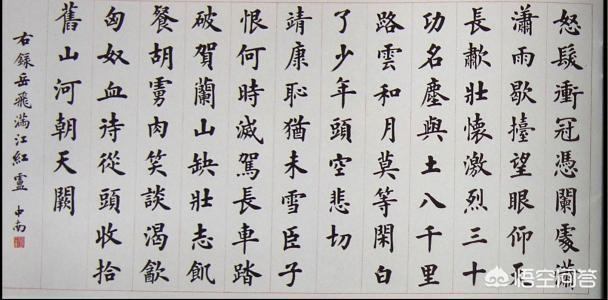 怒髮衝冠憑闌處瀟
瀟雨歇擡望眼仰天
長歗壯懷激烈三十
功名塵與土八千里
路雲和月莫等閑白
了少年頭空悲切
靖康恥猶未雪臣子
恨何時滅駕長車踏
破賀蘭山缺壯志飢
餐胡虜肉笑談渴㱃
匈奴血待從頭收拾
舊山河朝天闕
右錄岳飛滿江紅 中南
悟空问答